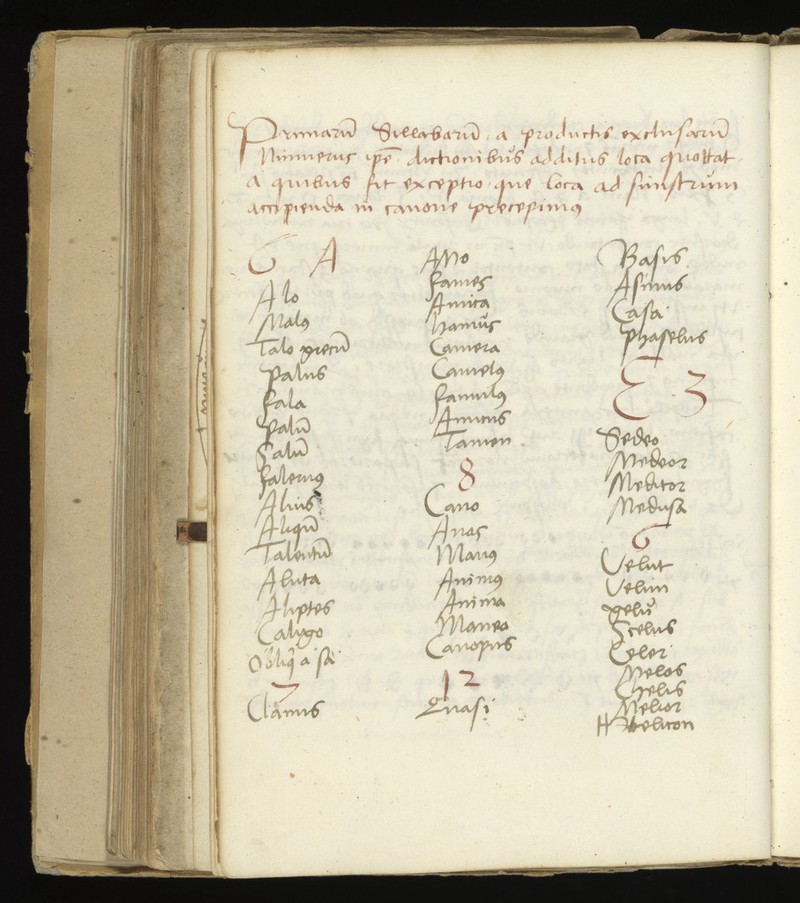 Primarũ Sillabarũ a productis exclusarũ
Numerus ipẽ dictionibus additus loca quottat
a quibus fit exceptio que loca ad sinistrum
accipienda in canone precepimus
6 A
Alo
Malꝯ
Talo grecũ
Palus
Fala
Palũ
Salũ
Falernꝯ
Alius
Aliqũ
Talentũ
Aluta
Aliptes
Caligo
Obliq̃ a sa
7
Clamis
Amo
Fames
Amita
Hamus
Camera
Camelꝯ
Famulꝯ
Amicus
Tamen
8
Cano
Anas
Manꝯ
Animꝯ
Anima
Maneo
Canopus
12
Quasi
Basis
Asinus
Casa
Phaselus
E 3
Sedeo
Medeor
Meditor
Medusa
6
Velut
Velim
gelu
Scelus
Celer
Melos
Chelis
Melior
Helicon